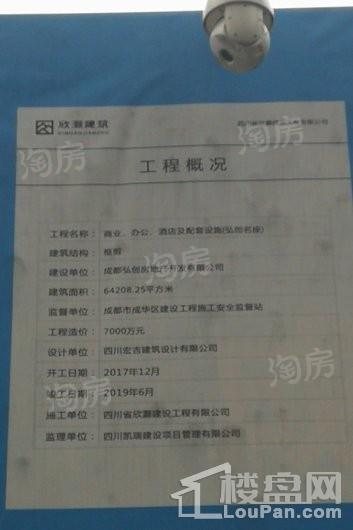 欣灏建筑
XINHAOJIANZHU
四川省欣灏建设工程有限公司
工程概况
工程名称： 商业、办公、酒店及配套设施(弘创名座)
建筑结构： 框剪
建设单位： 成都弘创房地产开发有限公司
建筑面积： 64208.25平方米
监督单位： 成都市成华区建设工程施工安全监督站
工程造价： 7000万元
设计单位： 四川宏吉建筑设计有限公司
开工日期： 2017年12月
竣工日期： 2019年6月
施工单位： 四川省欣灏建设工程有限公司
监理单位： 四川凯瑞建设项目管理有限公司
淘房
淘房
淘房
淘房
淘房
楼盘网
LouPan.com